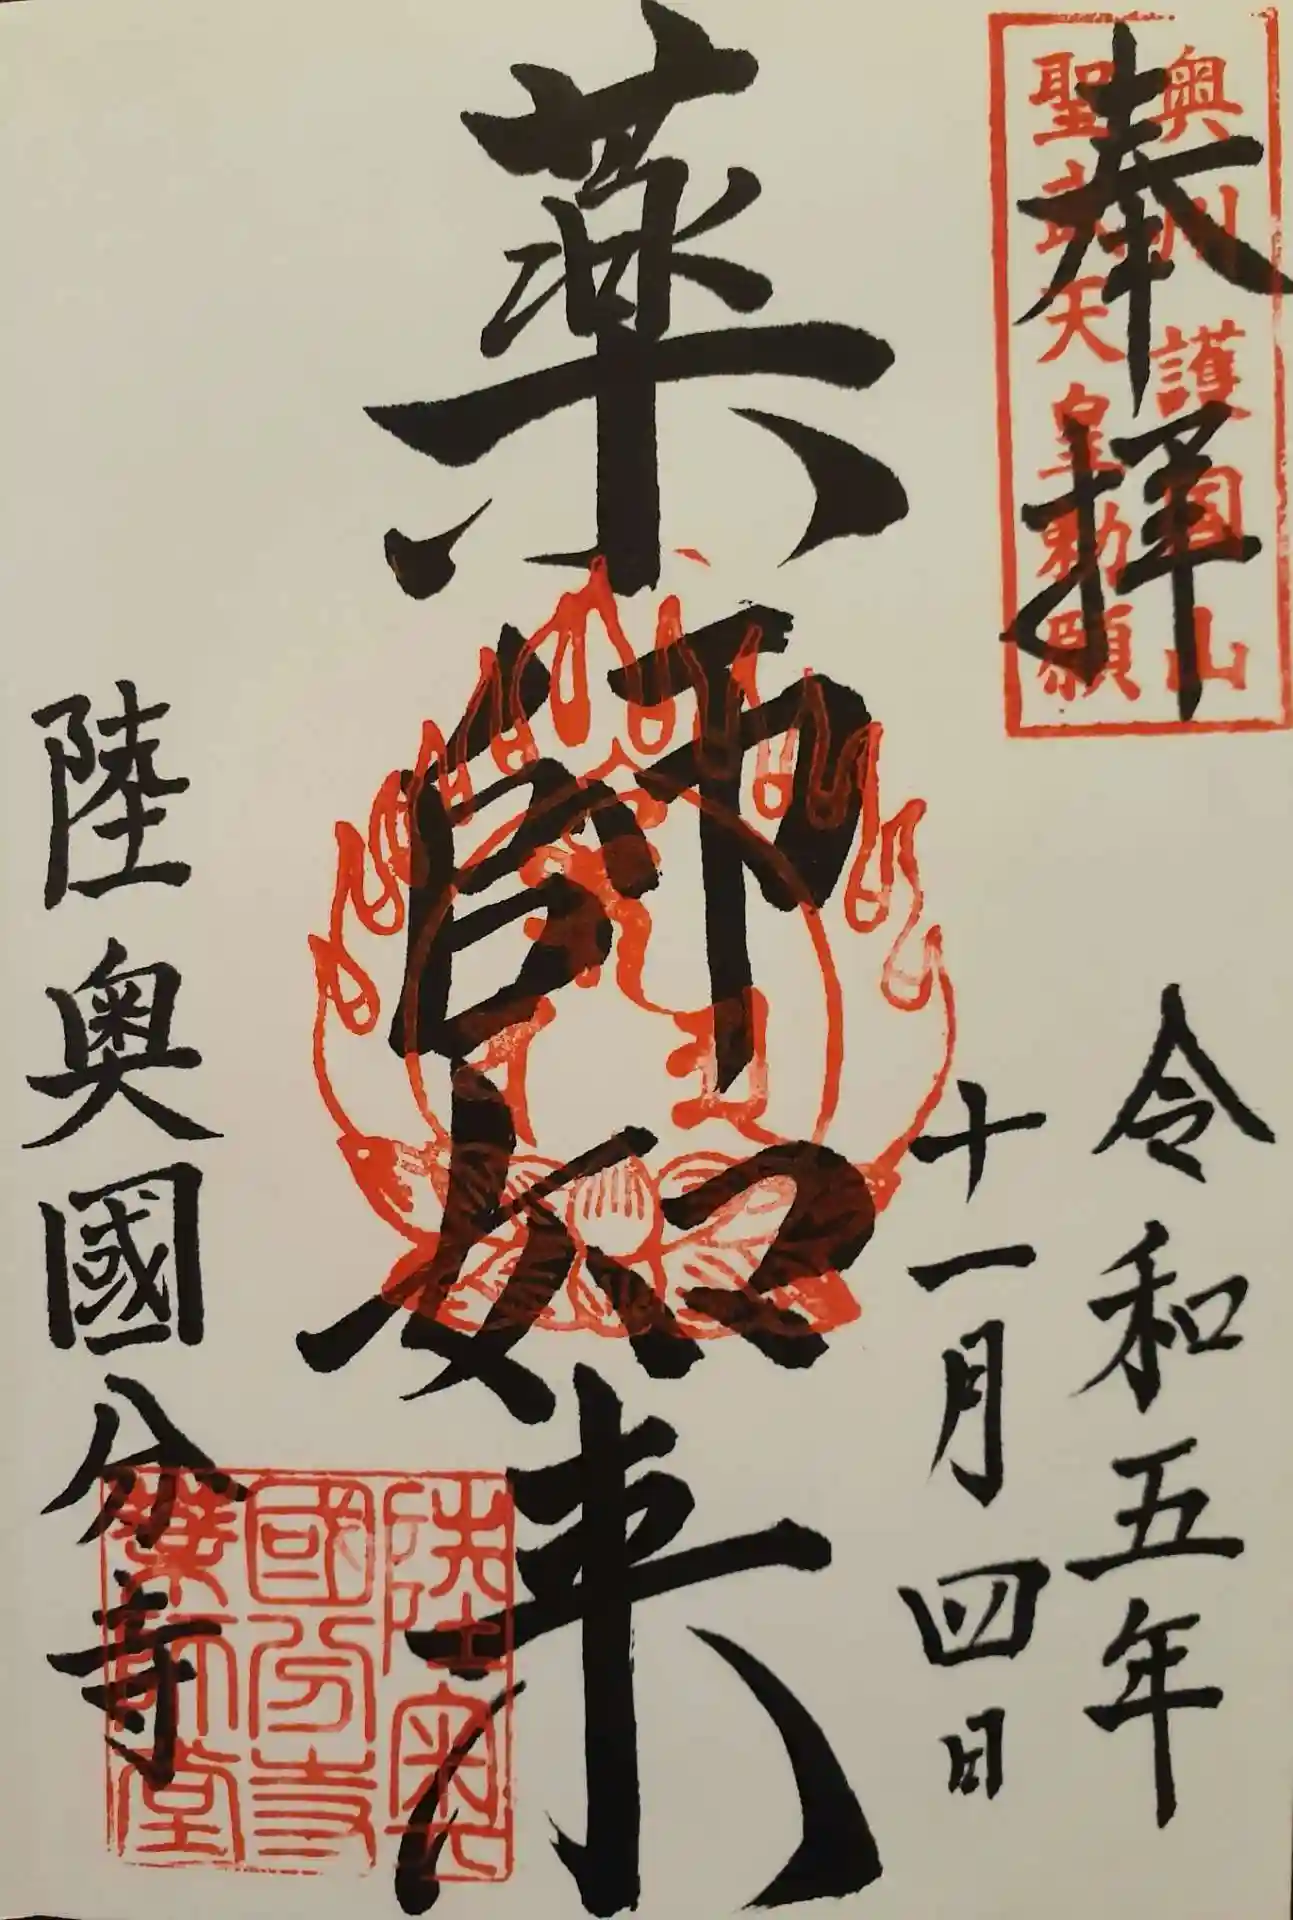 奉拝
奥州護国山
聖武天皇勅願
令和五年
十一月四日
薬師如来
陸奥國分寺
陸奥
國分寺
薬師堂